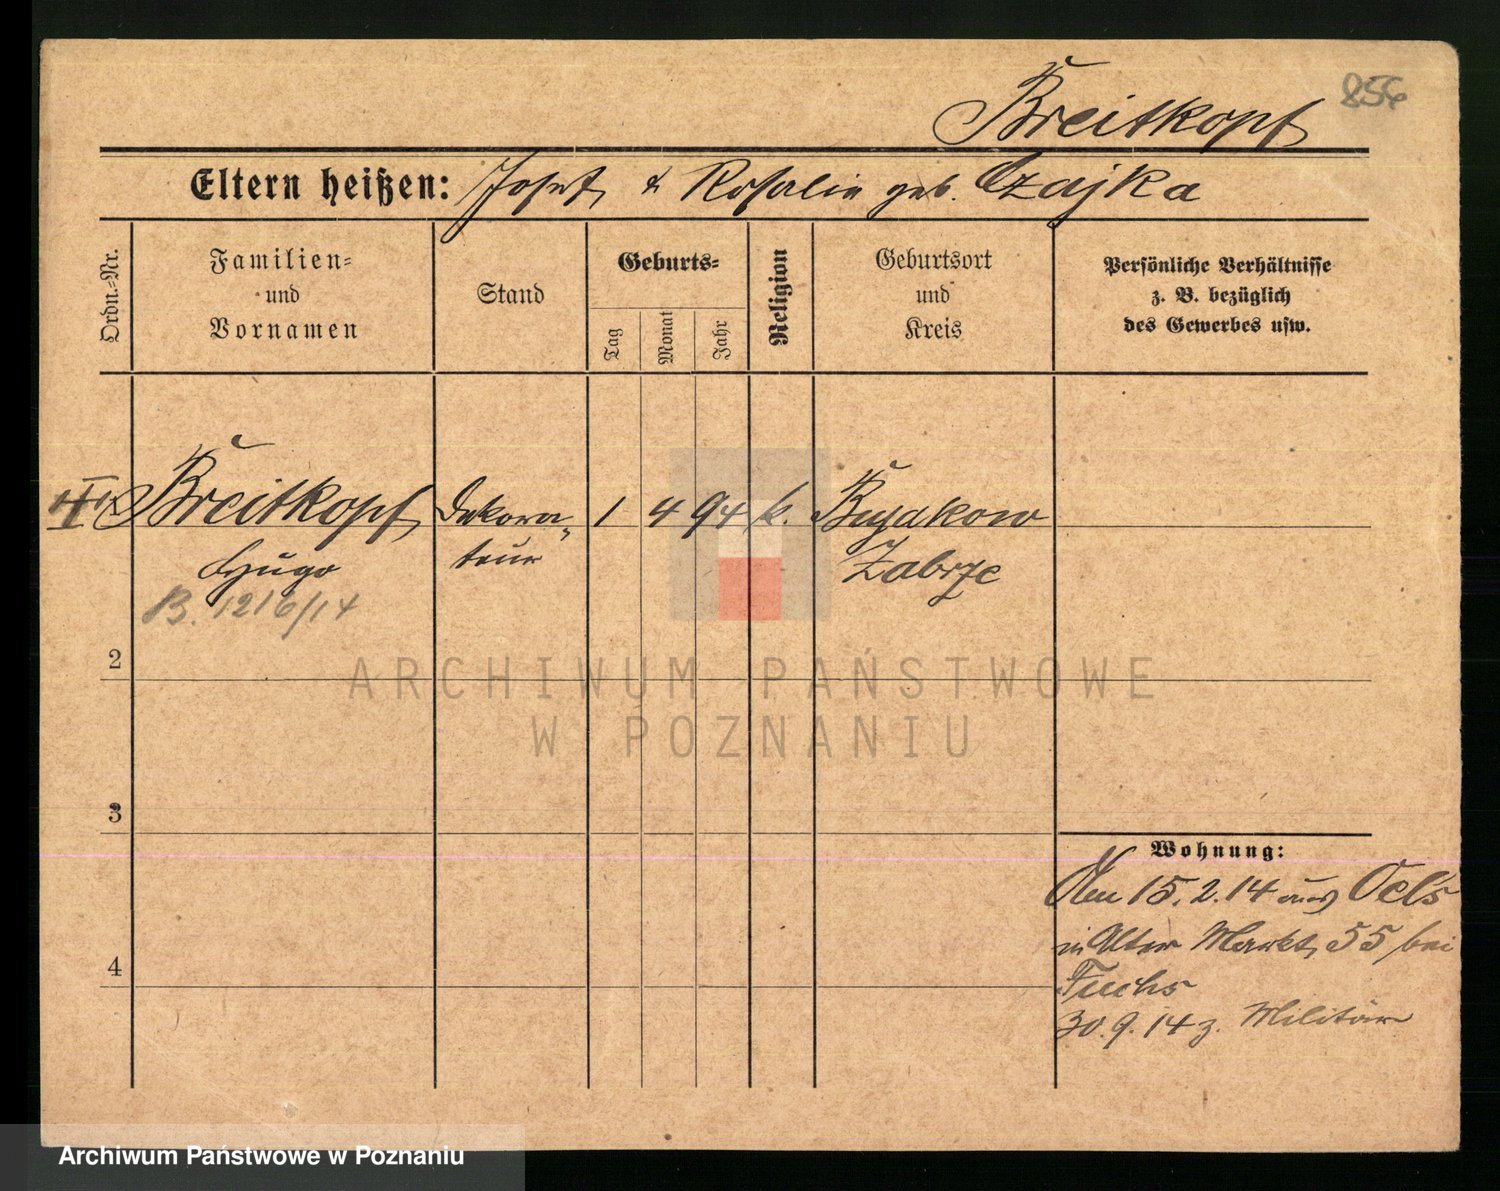 856
Breitkopf
Eltern heißen: Josef & Rosalie geb. Czajka
Ordn.-Nr.
Familien-
und
Vornamen
Stand
Geburts-
Tag
Monat
Jahr
Religion
Geburtsort
und
Kreis
Persönliche Verhältnisse
z. B. bezüglich
des Gewerbes usw.
Breitkopf Dekora- 1 4 94 k. Bujakow
Hugo teur Zabrze
B. 1216/14
2
ARCHIWUM PAŃSTWOWE
W POZNANIU
3
Wohnung:
Am 15. 2. 14 aus Oels
in Alter Markt 55 bei
4
Fuchs
30. 9. 14 z. Militär
Archiwum Państwowe w Poznaniu